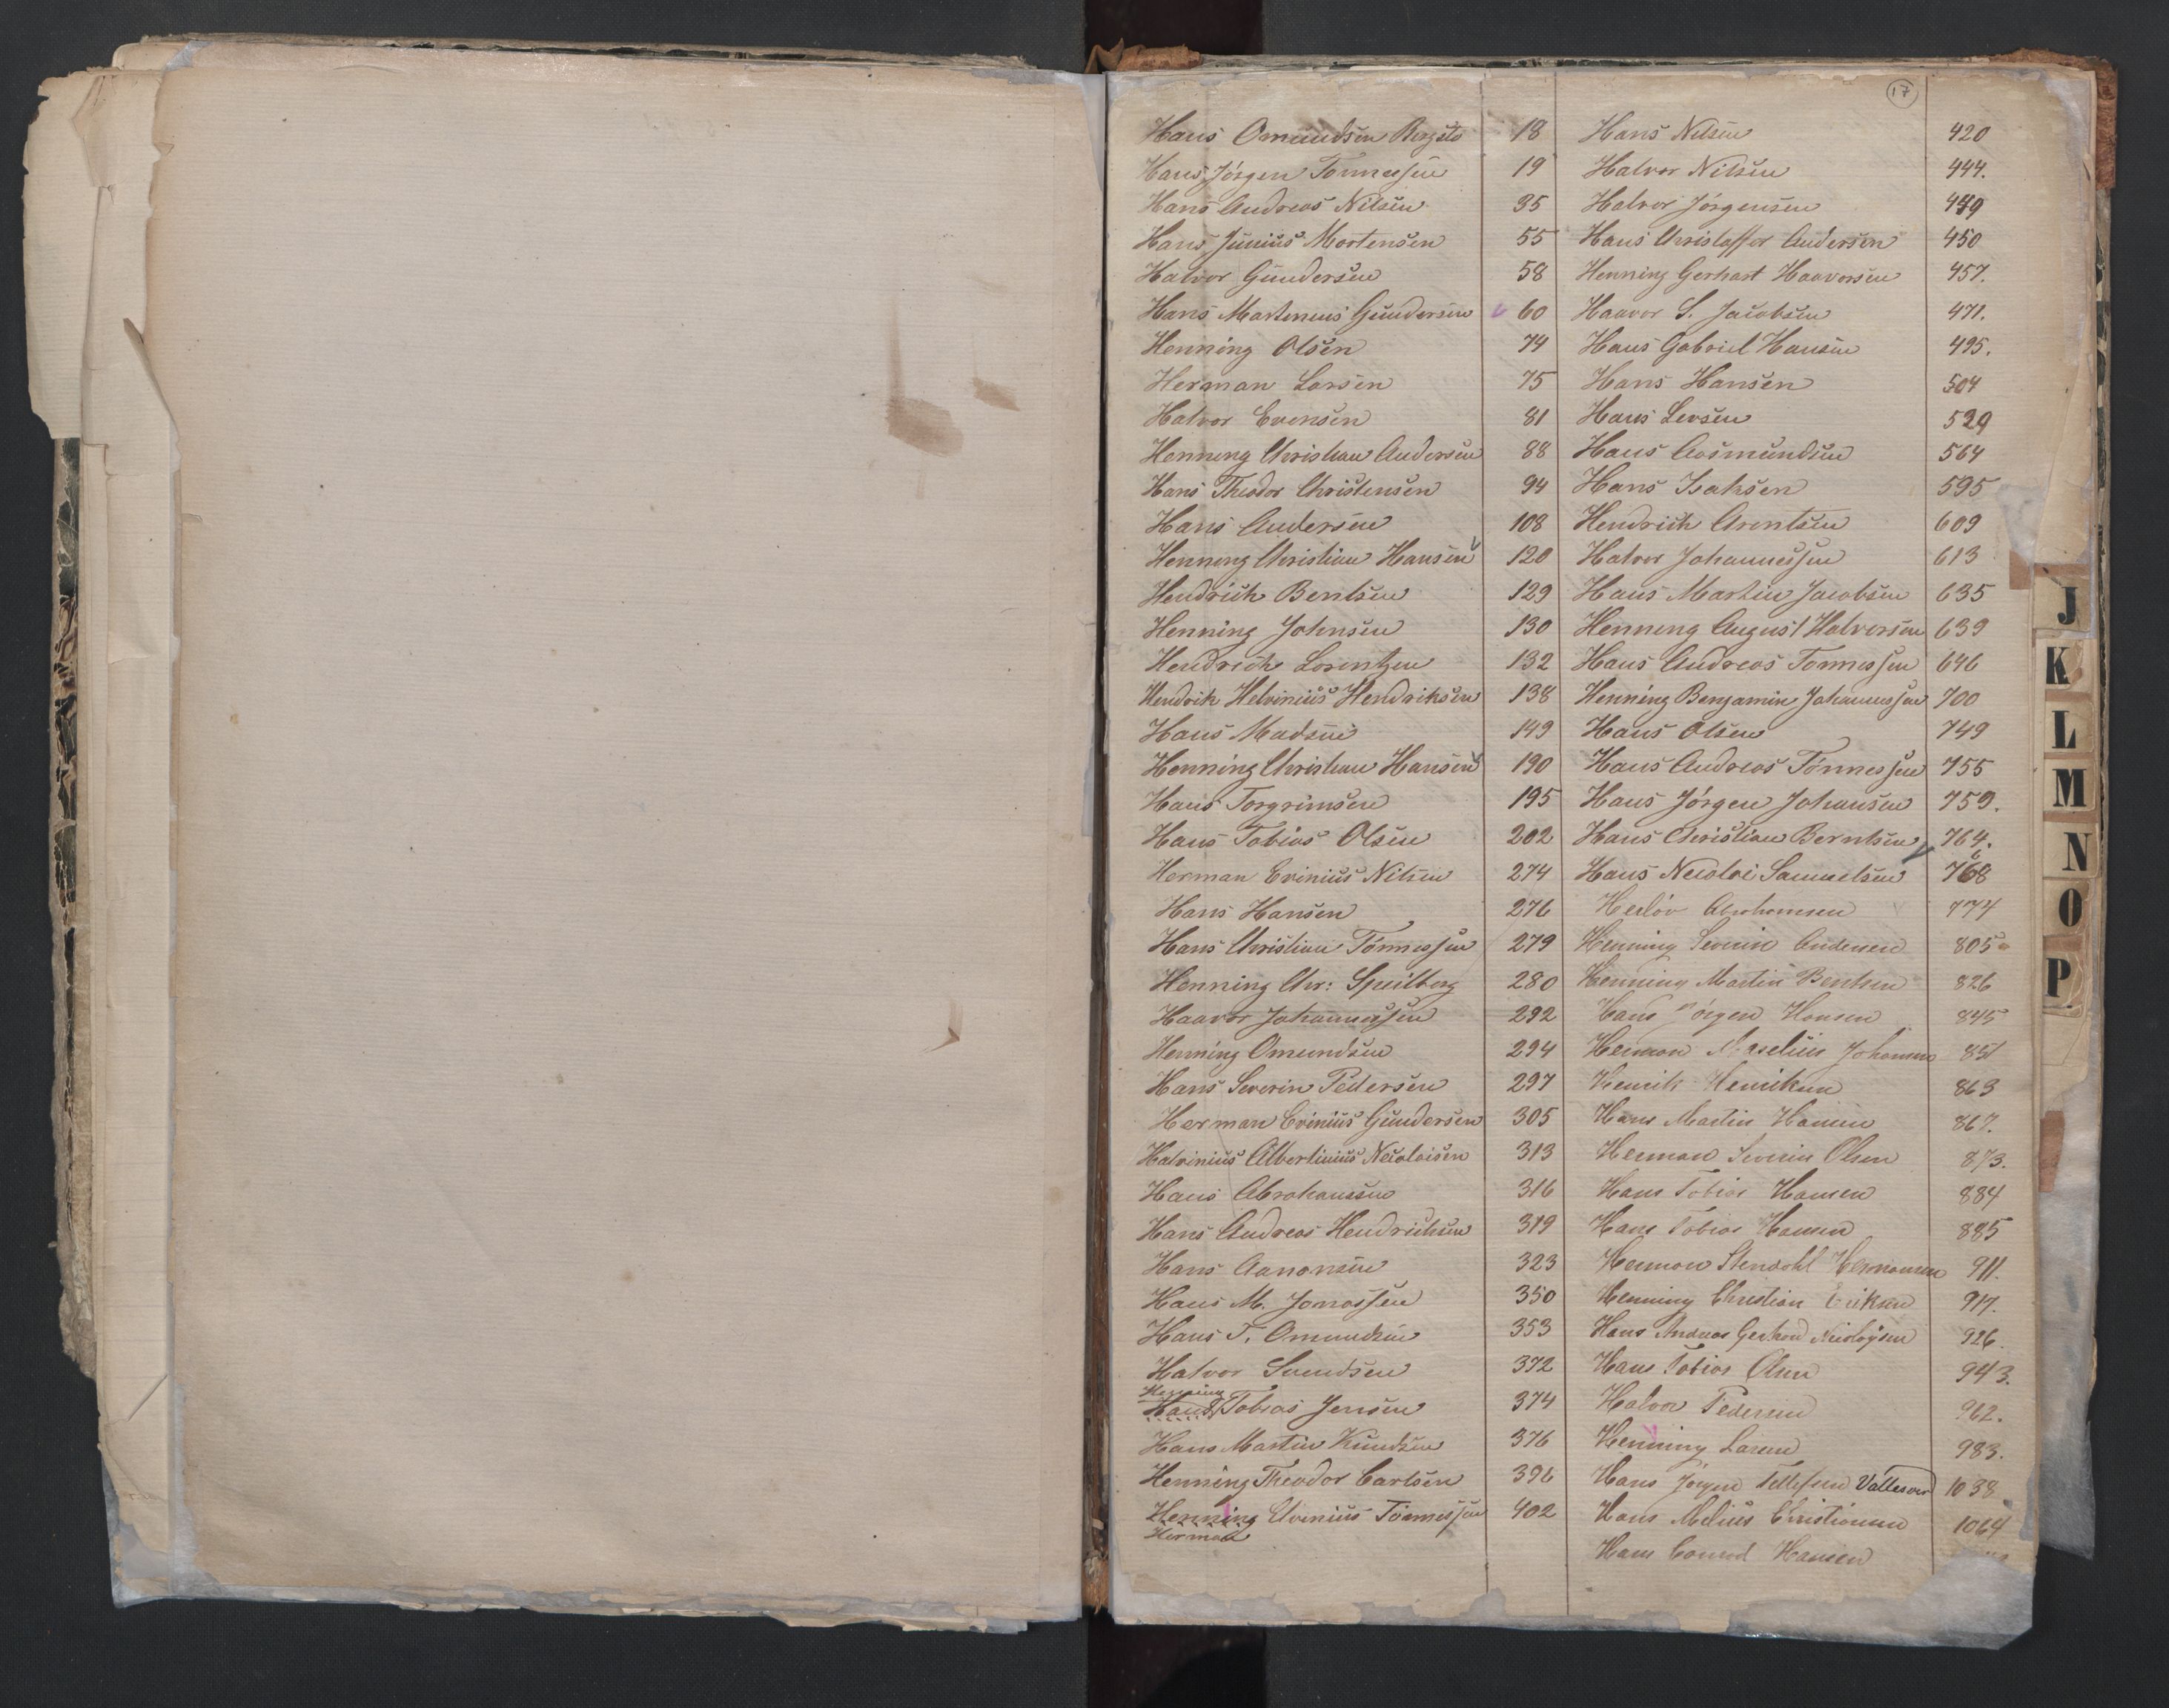 17
Hans Omundsen Bergstø 18
Hans Jörgen Tönnessen 19
Hans Andreas Nilsen 35
Hans Junius Mortensen 55
Halvor Gundersen 58
Hans Martenius Gundersen 60
Henning Olsen 74
Herman Larsen 75
Halvor Evensen 81
Henning Christian Andersen 88
Hans Theodor Christensen 94
Hans Andersen 108
Henning Christian Hansen 120
Hendrich Bentsen 129
Henning Johnsen 130
Hendrich Lorentzen 132
Hendrik Helvinius Hendriksen 138
Hans Madsen 149
Henning Christian Hansen 190
Hans Torgrimsen 195
Hans Tobias Olsen 202
Herman Evinius Nilsen 274
Hans Hansen 276
Hans Christian Tönnessen 279
Henning Chr: Speilberg 280
Haavor Johannessen 292
Henning Omundsen 294
Hans Severin Pedersen 297
Herman Evinius Gundersen 305
Halvinius Albertinius Nicolaisen 313
Hans Abrahamsen 316
Hans Andreas Hendrichsen 319
Hans Aanonsen 323
Hans M. Jonassen 350
Hans T. Omundsen 353
Halvor Svendsen 372
Henning
Hans Tobias Jensen 374
Hans Martin Knudsen 376
Henning Theodor Carlsen 396
Henning Evenius Tönnessen 402
Herman
Hans Nilsen 420
Halvor Nilsen 444.
Halvor Jörgensen 449
Hans Christoffer Andersen 450
Henning Gerhart Haavorsen 457.
Haavor S. Jacobsen 471.
Hans Gabriel Hansen 495.
Hans Hansen 504
Hans Larsen 529
Hans Aasmundsen 564
Hans Isaksen 595
Hendrich Arentsen 609
Halvor Johannessen 613
Hans Martin Jacobsen 635
Henning August Halvorsen 639
Hans Andreas Tönnessen 646
Henning Benjamin Johannessen 700
Hans Olsen 749
Hans Andreas Tönnessen 755
Hans Jörgen Johansen 759.
Hans Christian Berntsen 764.
Hans Nicolai Samuelsen 768
Abrahamsen 774
Henning Severin Andersen 805
Henning Martin Bentsen 826
Hans Jörgen Hansen 845
Herman Johannes 851
Henrik Henriksen 863
Hans Martin Hansen 867.
Herman Severin Olsen 873.
Hans Tobias Hansen 884
Hans Tobias Hansen 885
Herman Stendahl Hermansen 911.
Henning Christian Eriksen 917.
Hans Andreas Gerhard Nicolaysen 926.
Hans Tobias Olsen 943.
Halvor Pedersen 962.
Henning Larsen 983.
Hans Jörgen Tellefsen Vallesver 1038
Hans Melius Christiansen 1064
Hans Conrad Hansen
J
K
L
M
N
O
P